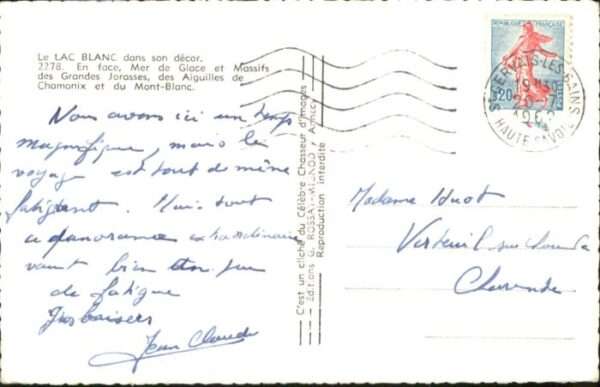 Le LAC BLANC dans son décor.
2278. En face, Mer de Glace et Massifs
des Grandes Jorasses, des Aiguilles de
Chamonix et du Mont-Blanc.
Nous avons ici un temps
magnifique, mais le
voyage est tout de même
fatigant. Mais tout
ce panorama extraordinaire
vaut bien un peu
de fatigue
Gros baisers
Jean Claude
C'est un cliché du Célèbre Chasseur d'Images
Editions G. ROSSAT-MIGNOD, Annecy
Reproduction interdite
REPUBLIQUE FRANÇAISE
0,20
ST GERVAIS-LES-BAINS
HAUTE SAVOIE
Madame Huot
Verteuil sur Charente
Charente